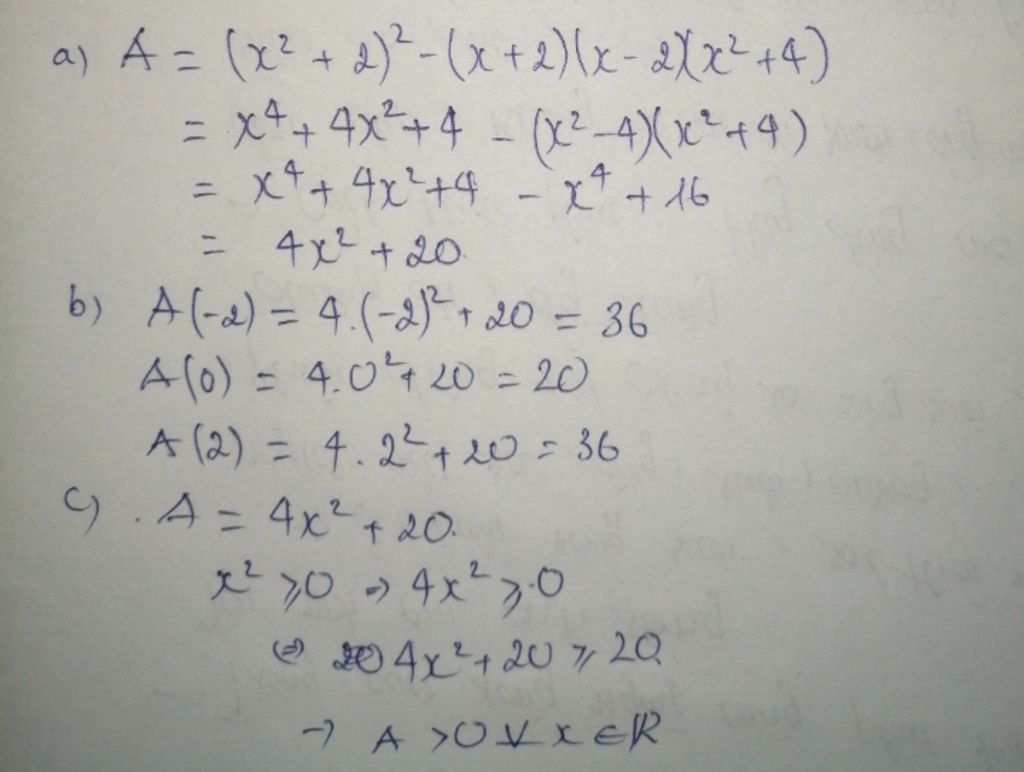 a) A = (x² + 2)² - (x + 2)(x - 2)(x² + 4)
= x⁴ + 4x² + 4 - (x² - 4)(x² + 4)
= x⁴ + 4x² + 4 - x⁴ + 16
= 4x² + 20.
b) A(-2) = 4.(-2)² + 20 = 36
A(0) = 4.0² + 20 = 20
A(2) = 4.2² + 20 = 36
c) . A = 4x² + 20.
x² ⩾ 0 → 4x² ⩾ 0
⇔ 4x² + 20 ⩾ 20.
→ A > 0 ∀ x ∈ ℝ